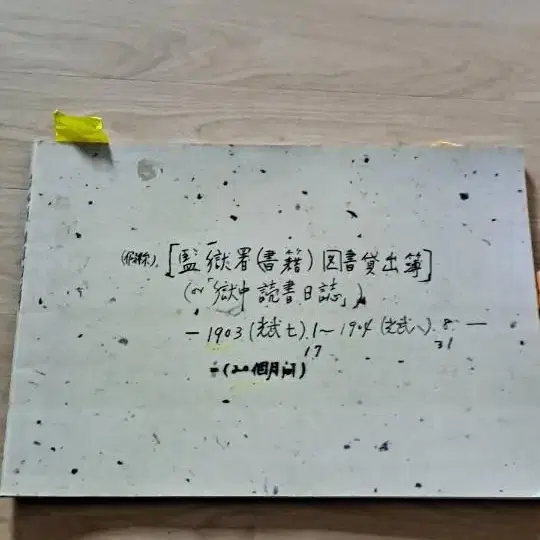 [監獄署(書籍) 図書貸出簿]
(「獄中読書日誌」)
— 1903 (光武七).1~1904 (光武八).8 —
17 31
(20個月间)